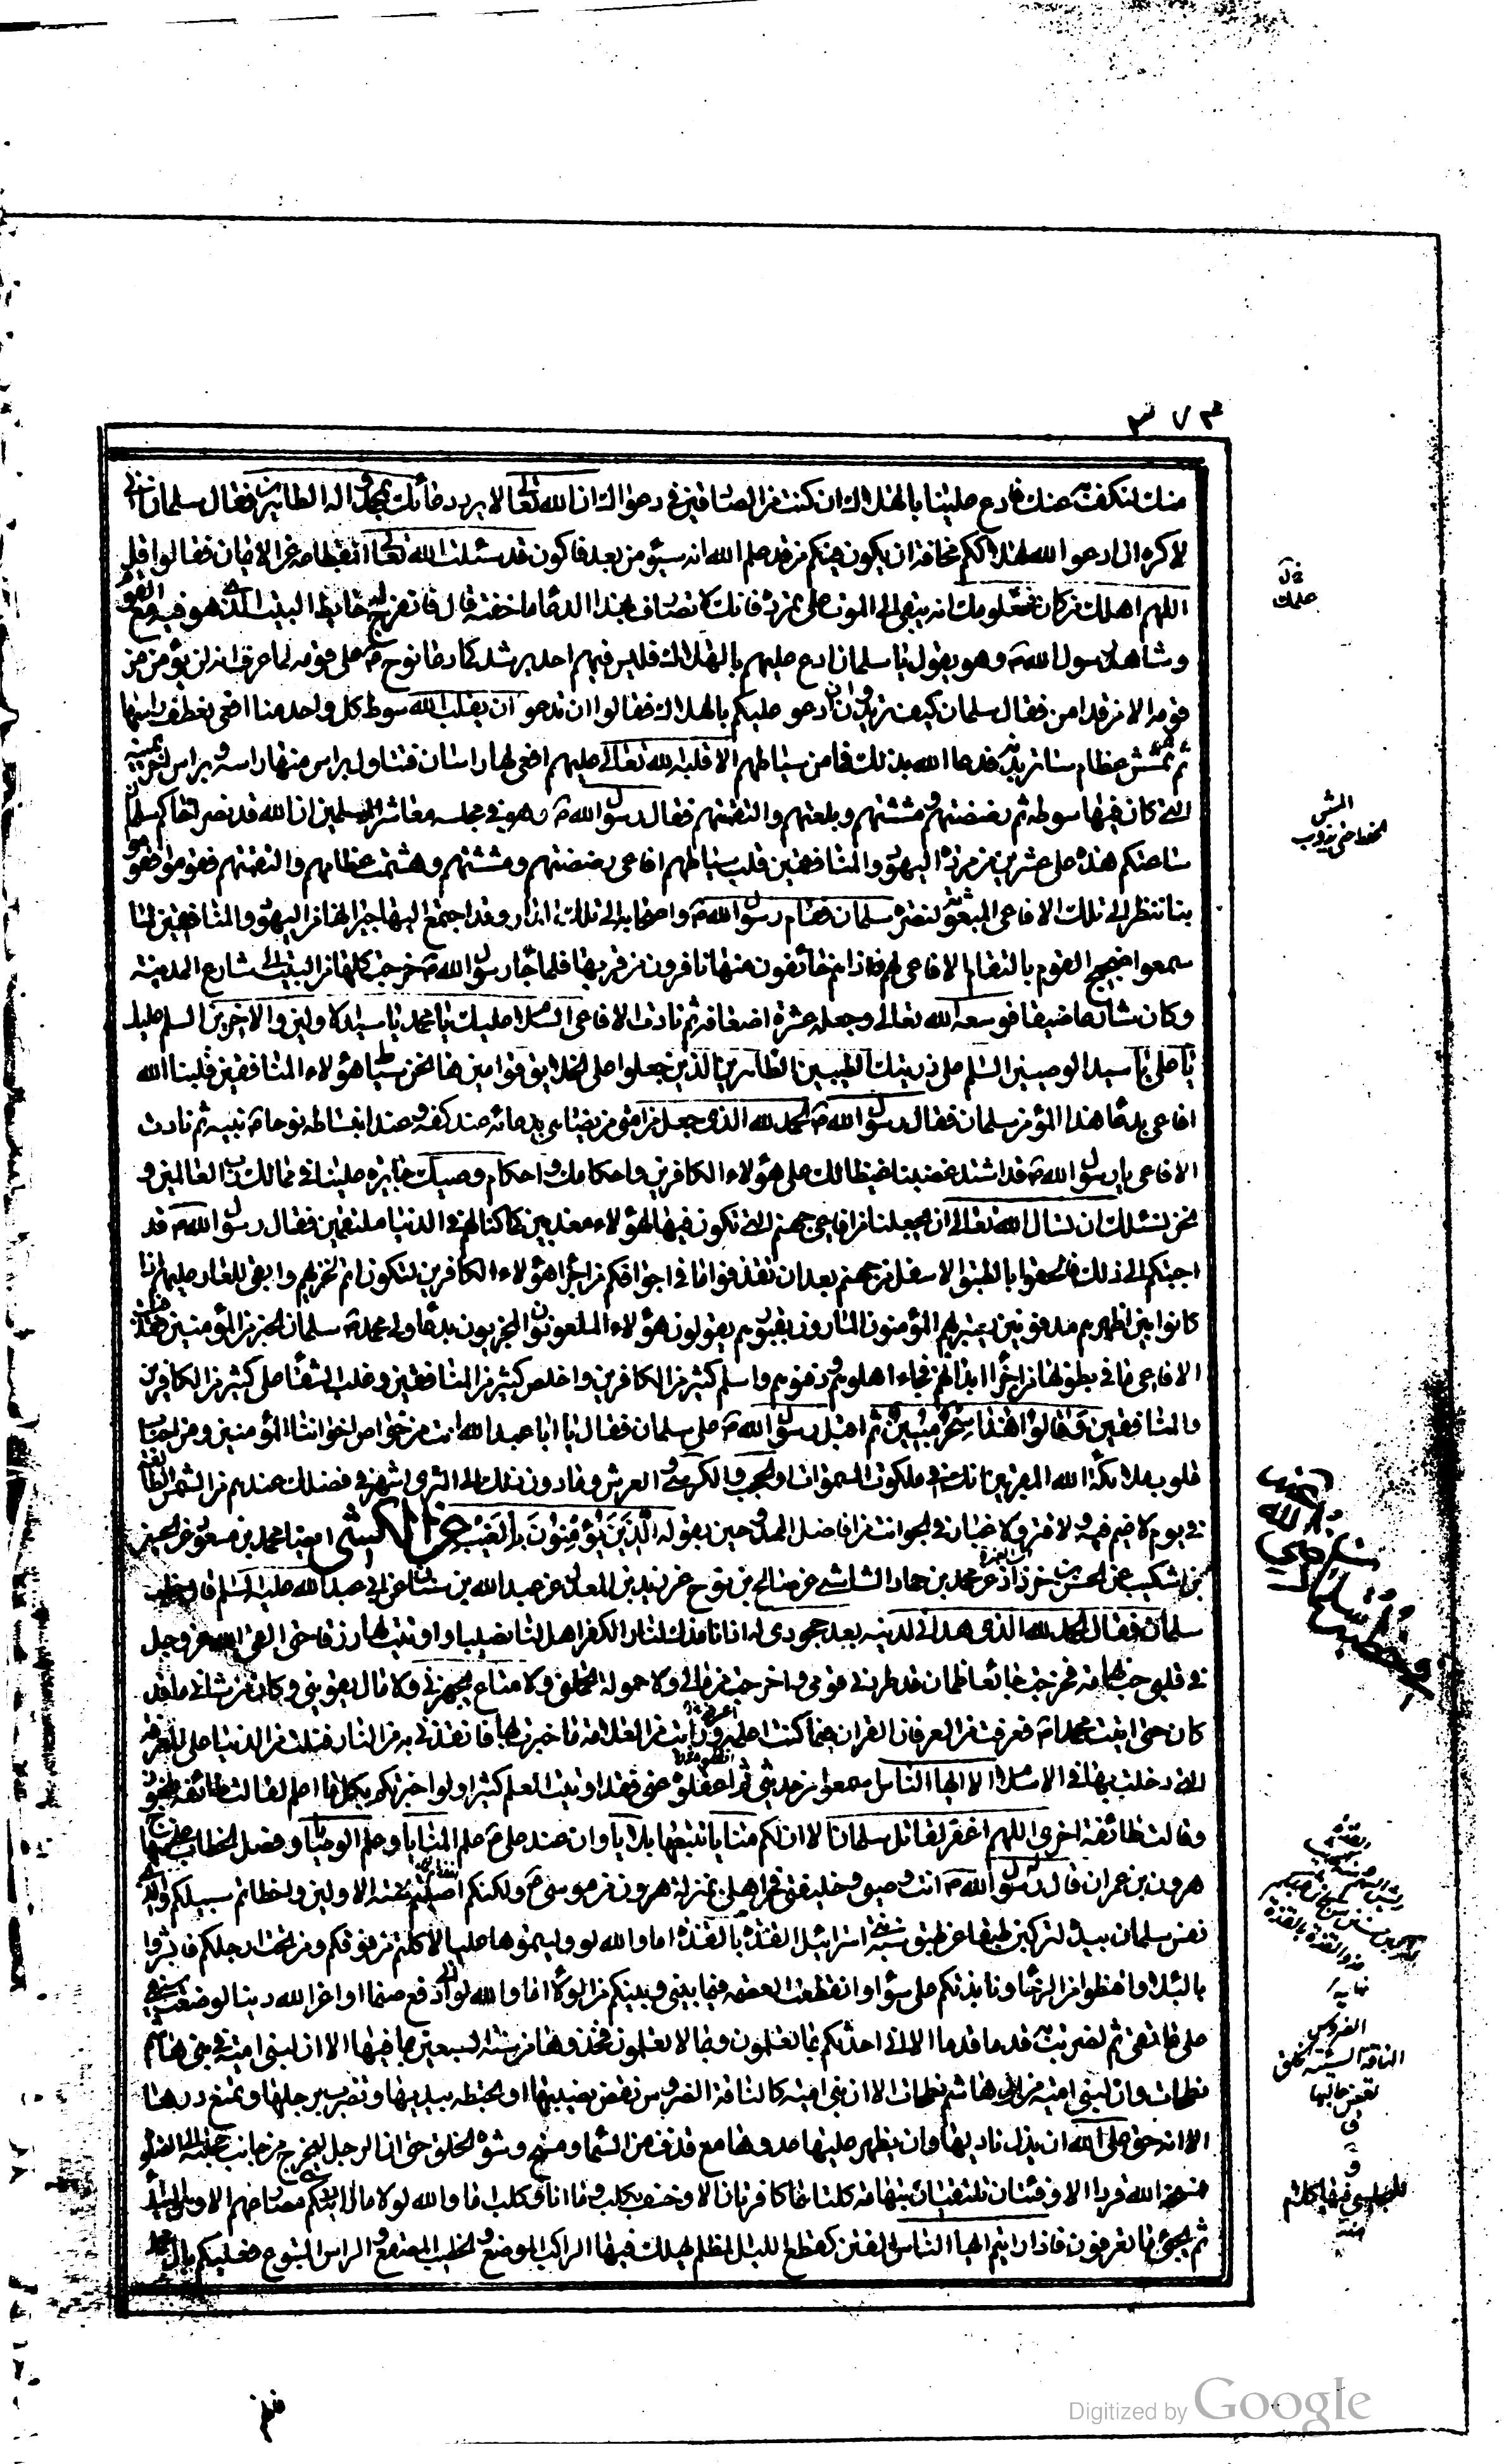 ٣٧٣
منك لنكفنّ عنك فادع علينا بالهلاك ان كنت من الصادقين في دعواك ان الله تعالى لا يرد دعائك بمحمد واله الطاهرين فقال سلمان اني
لاكره ان ادعو الله بهلاككم مخافة ان يكون فيكم من قد علم الله انه سيؤمن بعد فاكون قد سئلت الله تعالى انقطاعه عن الايمان فقالوا قل
اللهم اهلك من كان في معلومك انه يبقى الى الموت على تمرده فانك لا تصادف بهذا الدعاء ما خفته قال فانفرج له حايط البيت الذي هو فيه مع القوم
وشاهد رسول الله ص وهو يقول يا سلمان ادع عليهم بالهلاك فليس فيهم احد يرشد كما دعا نوح ع على قومه لما عرف انه لن يؤمن من
قومه الا من قد امن فقال سلمان كيف تريدون ان ادعو عليكم بالهلاك فقالوا ان تدعو ان يقلب الله سوط كل واحد منا افعى يعطف راسها
ثم تمشش عظام سائر بدنه فدعا الله بذلك فما من سياطهم الا قلبه الله تعالى عليهم افعى لها راسان فتناول براس منها راسه وبراس اخر يمينه
التي كان فيها سوطه ثم رضضتهم ومششتهم وبلعتهم والتقمتهم فقال رسول الله ص وهو في مجلسه معاشر المسلمين ان الله قد نصر اخاكم سلمان
ساعتكم هذه على عشرين من مردة اليهود والمنافقين قلب سياطهم افاعي رضضتهم ومششتهم وهشمت عظامهم والتقمتهم فقوموا
بنا ننظر الى تلك الافاعي المبعوثة لنصرة سلمان فقام رسول الله ص واصحابه الى تلك الدار وقد اجتمع اليها جيرانها من اليهود والمنافقين لما
سمعوا ضجيج القوم بالتقام الافاعي لهم واذا هم خائفون منها نافرون من قربها فلما جاء رسول الله ص خرجت كلها من البيت الى شارع المدينة
وكان شارعا ضيقا فوسعه الله تعالى وجعله عشرة اضعافه ثم نادت الافاعي السلام عليك يا محمد يا سيد الاولين والاخرين السلام عليك
يا علي يا سيد الوصيين السلم على ذريتك الطيبين الطاهرين الذين جعلوا على الخلايق قوامين ها نحن سياط هؤلاء المنافقين قلبنا الله
افاعي بدعاء هذا المؤمن سلمان فقال رسول الله ص الحمد لله الذي جعل من امتي من يضاهي بدعائه عند كفه وعند انبساطه نوحا ع نبيه ثم نادت
الافاعي يا رسول الله ص قد اشتد غضبنا غيظا لك على هؤلاء الكافرين واحكامك واحكام وصيك جايزة علينا في ممالك رب العالمين و
نحن نسئلك ان تسال الله تعالى ان يجعلنا من افاعي جهنم التي نكون فيها لهؤلاء معذبين كما كنا لهم في الدنيا ملتقمين فقال رسول الله ص قد
اجبتكم الى ذلك فالحقوا بالطبق الاسفل من جهنم بعد ان تقذفوا ما في اجوافكم من اجزاء هؤلاء الكافرين لتكون اتم لخزيهم وابقى للعار عليهم اذا
كانوا بين اظهرهم مدفونين يعتبر بهم المؤمنون المارون بقبورهم يقولون هؤلاء الملعونون المخزيون بدعاء ولي محمد ص سلمان الخير من المؤمنين فقذفت
الافاعي ما في بطونها من اجزاء ابدانهم فجاء اهلوهم ودفنوهم واسلم كثير من الكافرين واخلص كثير من المنافقين وغلب الشقاء على كثير من الكافرين
والمنافقين وقالوا هذا سحر مبين ثم اقبل رسول الله ص على سلمان فقال يا ابا عبد الله انت من خواص اخواننا المؤمنين ومن احباب
قلوب ملائكة الله المقربين انك في ملكوت السموات والحجب والكرسي والعرش وما دون ذلك الى الثرى اشهر في فضلك عندهم من الشمس الطالعة
في يوم لا غيم فيه ولا قتر ولا غبار في الجو انت من افاضل الممدوحين بقوله الَّذينَ يُؤْمِنُونَ بِالْغَيْبِ عن الكشي ايضا محمد بن مسعود عن الحسين
بن اشكيب عن الحسن بن خرزاذ عن محمد بن حماد الشاشي عن صالح بن نوح عن زيد بن المعدل عن عبد الله بن سنان عن ابي عبد الله عليه السلم قال خطب
سلمان فقال الحمد لله الذي هداني لدينه بعد جحودي له اذ انا مذك لنار الكفر اهل لها نصيبا واوتيت لها رزقا حتى القى الله عز وجل
في قلبي حب تهامة فخرجت جائعا ظمان قد طردني قومي واخرجت من مالي ولا حمولة تحملني ولا متاع يجهزني ولا مال يقويني وكان من شاني ما قد
كان حتى اتيت محمدا ص فعرفت من العرفان القران ما كنت اعلمه ورايت من العلامة ما خبرت بها فانقذني به من النار فنلت من الدنيا على المعرفة
التي دخلت بها في الاسلام الا ايها الناس سمعوا من حديثي ثم اعقلوه عني فقد اوتيت العلم كثيرا ولو اخبرتكم بكل ما اعلم لقالت طائفة لمجنون
وقالت طائفة اخرى اللهم اغفر لقاتل سلمان الا ان لكم منايا تتبعها بلايا وان عند علي ع علم المنايا وعلم الوصايا وفصل الخطاب على منهاج
هرون بن عمران قال له رسول الله ص انت وصيي وخليفتي في اهلي بمنزلة هرون من موسى ع ولكنكم اصبتم سنة الاولين واخطاتم سبيلكم والذي
نفس سلمان بيده لتركبن طبقا عن طبق سنة بني اسرائيل القذة بالقذة اما والله لو وليتموها عليا لاكلتم من فوقكم ومن تحت ارجلكم فابشروا
بالبلاء واقنطوا من الرخاء ونابذتكم على سواء وانقطعت العصمة فيما بيني وبينكم من الولاء اما والله لو اني ادفع ضيما او اعز لله دينا لوضعت سيفي
على عاتقي ثم لضربت به قدما قدما الا اني احدثكم بما تعلمون وبما لا تعلمون فخذوها من سنة السبعين بما فيها الا ان لبني امية في بني هاشم
نطحات وان لبني امية من آل هاشم نطحات الا ان بني امية كالناقة الضروس تعض بفيها وتخبط بيديها وتضرب برجلها وتمنع درها
الا انه حق على الله ان يذل ناديها وان يظهر عليها عدوها مع قذف من السماء ومسخ وسوء الخلق حتى ان الرجل ليخرج من جانب حجلته الى الصلوة
فيمسخه الله قردا الا وفئتان تلتقيان بتهامة كلتاهما كافرتان الا وخسف بكلب وما انا وكلب اما والله لولا ما لاريتكم مصارعهم الا وهو البيداء
ثم يجيء ما تعرفون فاذا رايتم ايها الناس الفتن كقطع الليل المظلم يهلك فيها الراكب الموضع والخطيب المصقع والراس المتبوع فعليكم بال محمد
علمك
المش
الضروس
الناقة السيئة الخلق
تعض حالبها
ق
Digitized by Google